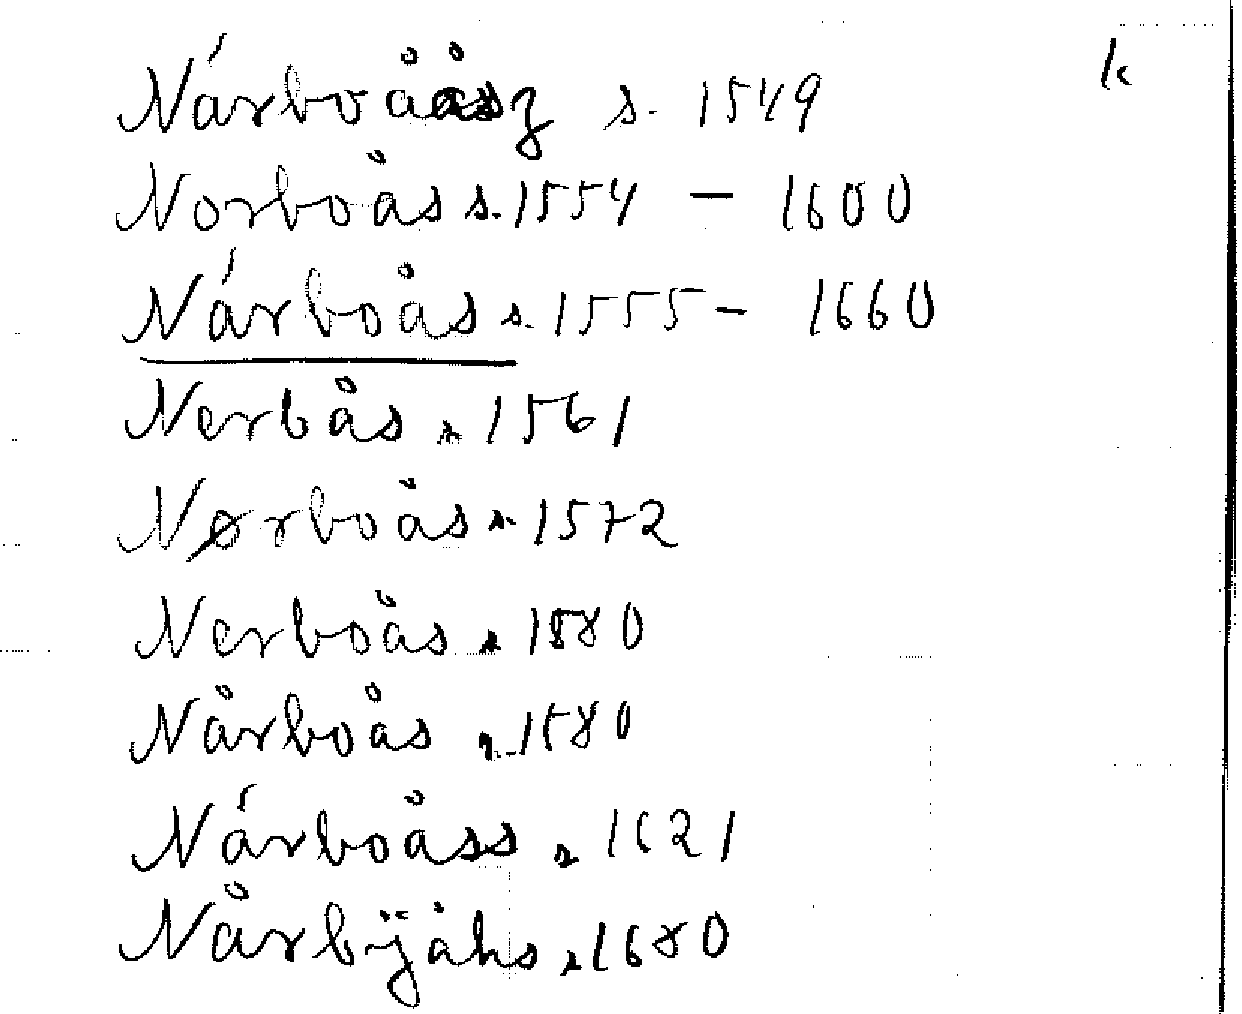 k
Nárboååsz s. 1549
Norboås s. 1554 – 1600
Nárboås s. 1555 – 1660
Nerbås s. 1561
Nørboås s. 1572
Nerboås s. 1580
Nårboås s. 1580
Nárboåss s. 1621
Nårbÿåhs s. 1680